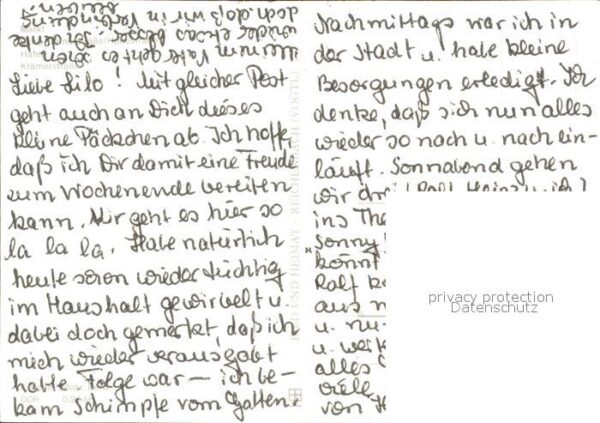 Liebe Lilo! Mit gleicher Post
geht auch an Dich dieses
kleine Päckchen ab. Ich hoffe,
daß ich Dir damit eine Freude
zum Wochenende bereiten
kann. Mir geht es hier so
la la la. Habe natürlich
heute schon wieder tüchtig
im Haushalt gewirbelt u.
dabei doch gemerkt, daß ich
mich wieder verausgabt
hatte Folge war — ich be-
kam Schimpfe vom Gatten.
Nachmittags war ich in
der Stadt u. habe kleine
Besorgungen erledigt. Ich
denke, daß sich nun alles
wieder so nach u. nach ein-
läuft. Sonnabend gehen
wir drei (Ralf, Heinz u. ich)
ins The
Sonny
könnt
Ralf
aus
u. nu-
u. we
alles
viell.
von H
geht es schon
wieder etwas besser. Ich denke
doch, daß wir in Verbindung
BILD UND HEIMAT REICHENBACH (VOGTL)
privacy protection
Datenschutz